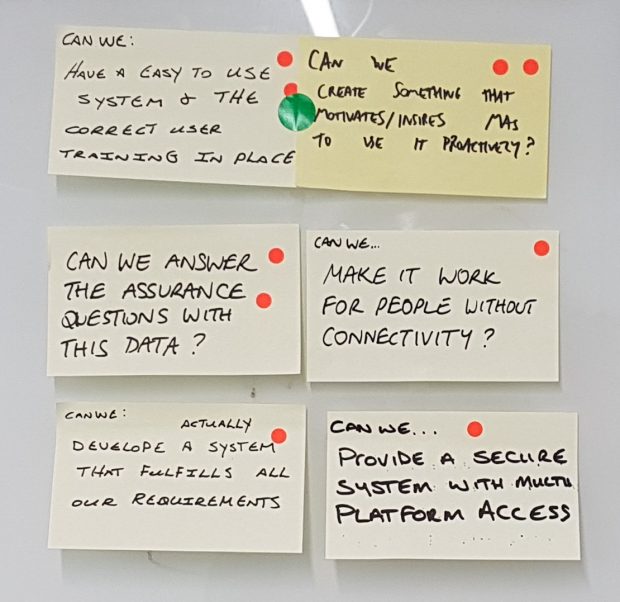 CAN WE:
HAVE A EASY TO USE
SYSTEM & THE
CORRECT USER
TRAINING IN PLACE
CAN WE
CREATE SOMETHING THAT
MOTIVATES/INSIRES MAS
TO USE IT PROACTIVELY?
CAN WE ANSWER
THE ASSURANCE
QUESTIONS WITH
THIS DATA?
CAN WE...
MAKE IT WORK
FOR PEOPLE WITHOUT
CONNECTIVITY?
CAN WE: ACTUALLY
DEVELOPE A SYSTEM
THAT FULFILLS ALL
OUR REQUIREMENTS
CAN WE...
PROVIDE A SECURE
SYSTEM WITH MULTI
PLATFORM ACCESS